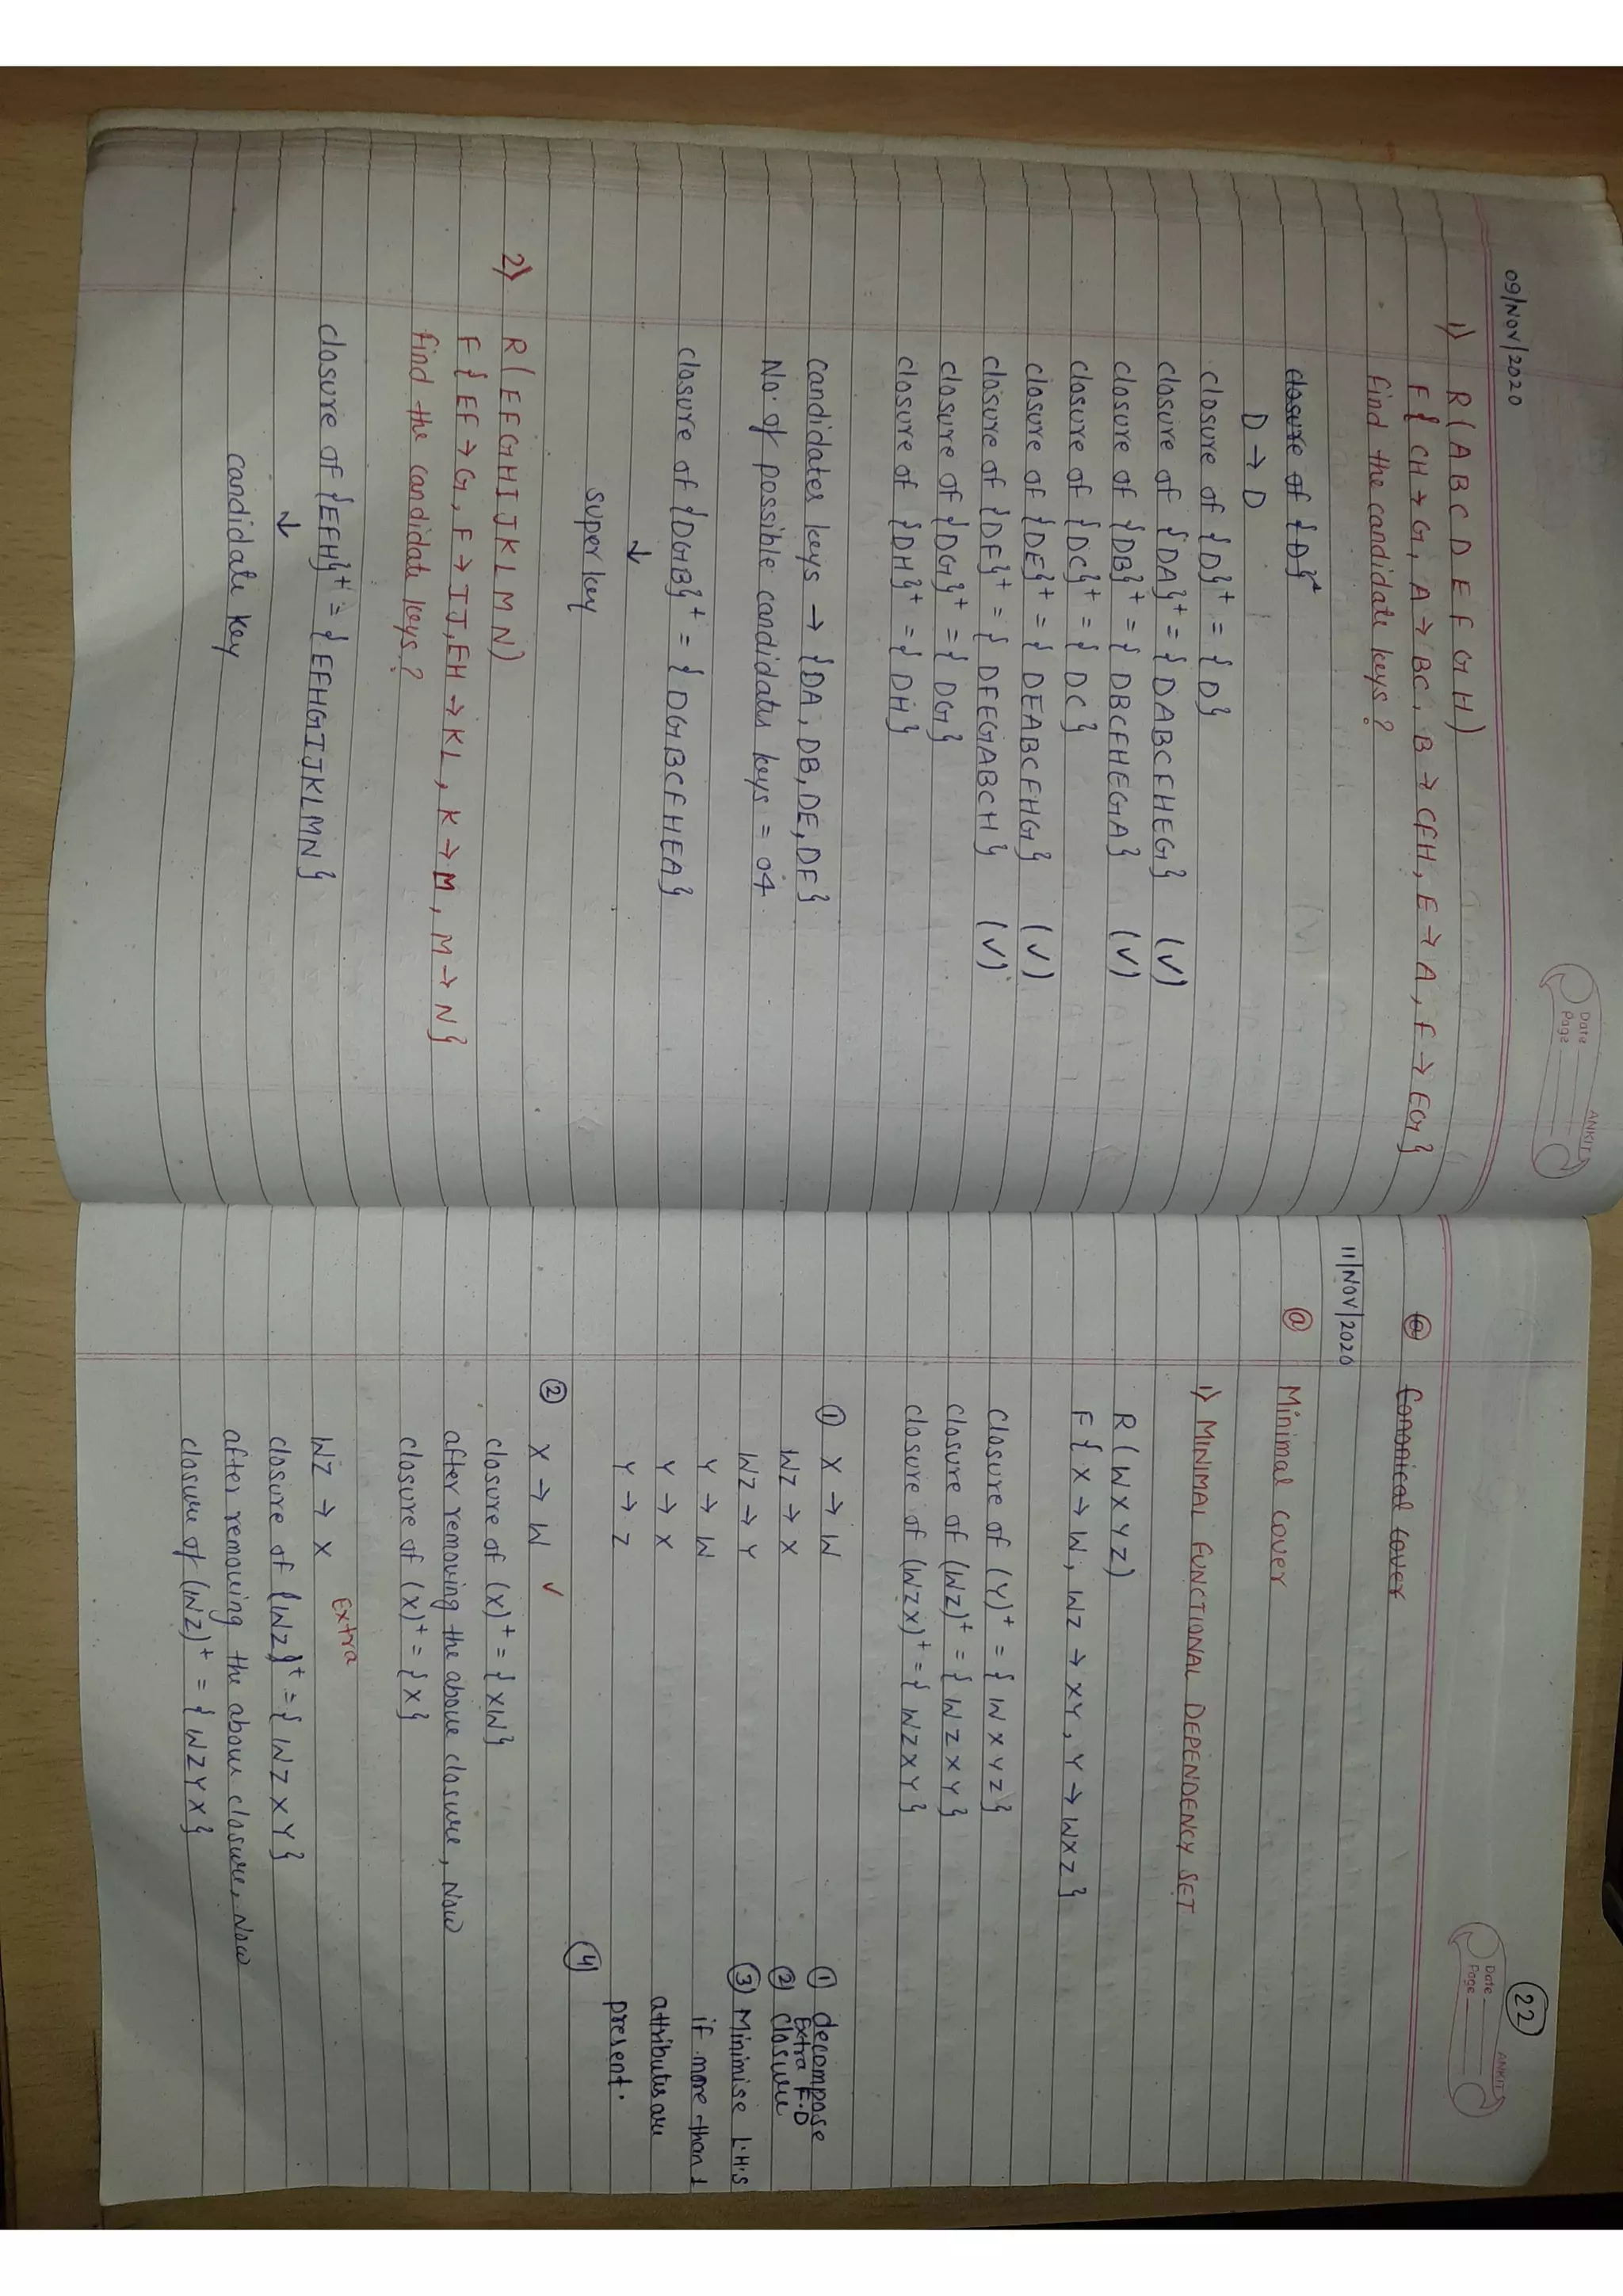 ANKIT
Date
Page
09/Nov/2020
1) R(A B C D E F G H)
F{ CH→G, A→BC, B→CFH, E→A, F→EG}
find the candidate keys?
closure of {D}+
D→D
closure of {D}+ = {D}
closure of {DA}+ = { DABCFHEG} (✓)
closure of {DB}+ = { DBCFHEGA} (✓)
closure of {DC}+ = { DC}
closure of {DE}+ = { DEABCFHG} (✓)
closure of {DF}+ = { DFEGABCH} (✓)
closure of {DG}+ = { DG}
closure of {DH}+ = { DH}
candidates keys → {DA, DB, DE, DF}
No. of possible candidates keys = 04.
closure of {DGB}+ = { DGBCFHEA}
↓
super key
2) R(EFGHIJKLMN)
F{ EF→G, F→IJ, EH→KL, K→M, M→N}
find the candidate keys?
closure of {EFH}+ = { EFHGIJKLMN}
↓
candidate key
22
ANKIT
Date
Page
@ Canonical cover
11/Nov/2020
@ Minimal cover
1) MINIMAL FUNCTIONAL DEPENDENCY SET
R(WXYZ)
F{ X→W, WZ→XY, Y→WXZ}
closure of (Y)+ = { WXYZ}
closure of (WZ)+ = { WZXY}
closure of (WZX)+ = { WZXY}
① X→W
WZ→X
WZ→Y
Y→W
Y→X
Y→Z
① decompose
② Extra F.D closure
③ Minimise L.H.S
if more than 1
attributes are
present.
④
② X→W ✓
closure of (X)+ = {XW}
after removing the above closure, Now
closure of (X)+ = {X}
WZ→X Extra
closure of {WZ}+ = { WZXY}
after removing the above closure, Now
closure of (WZ)+ = { WZYX}